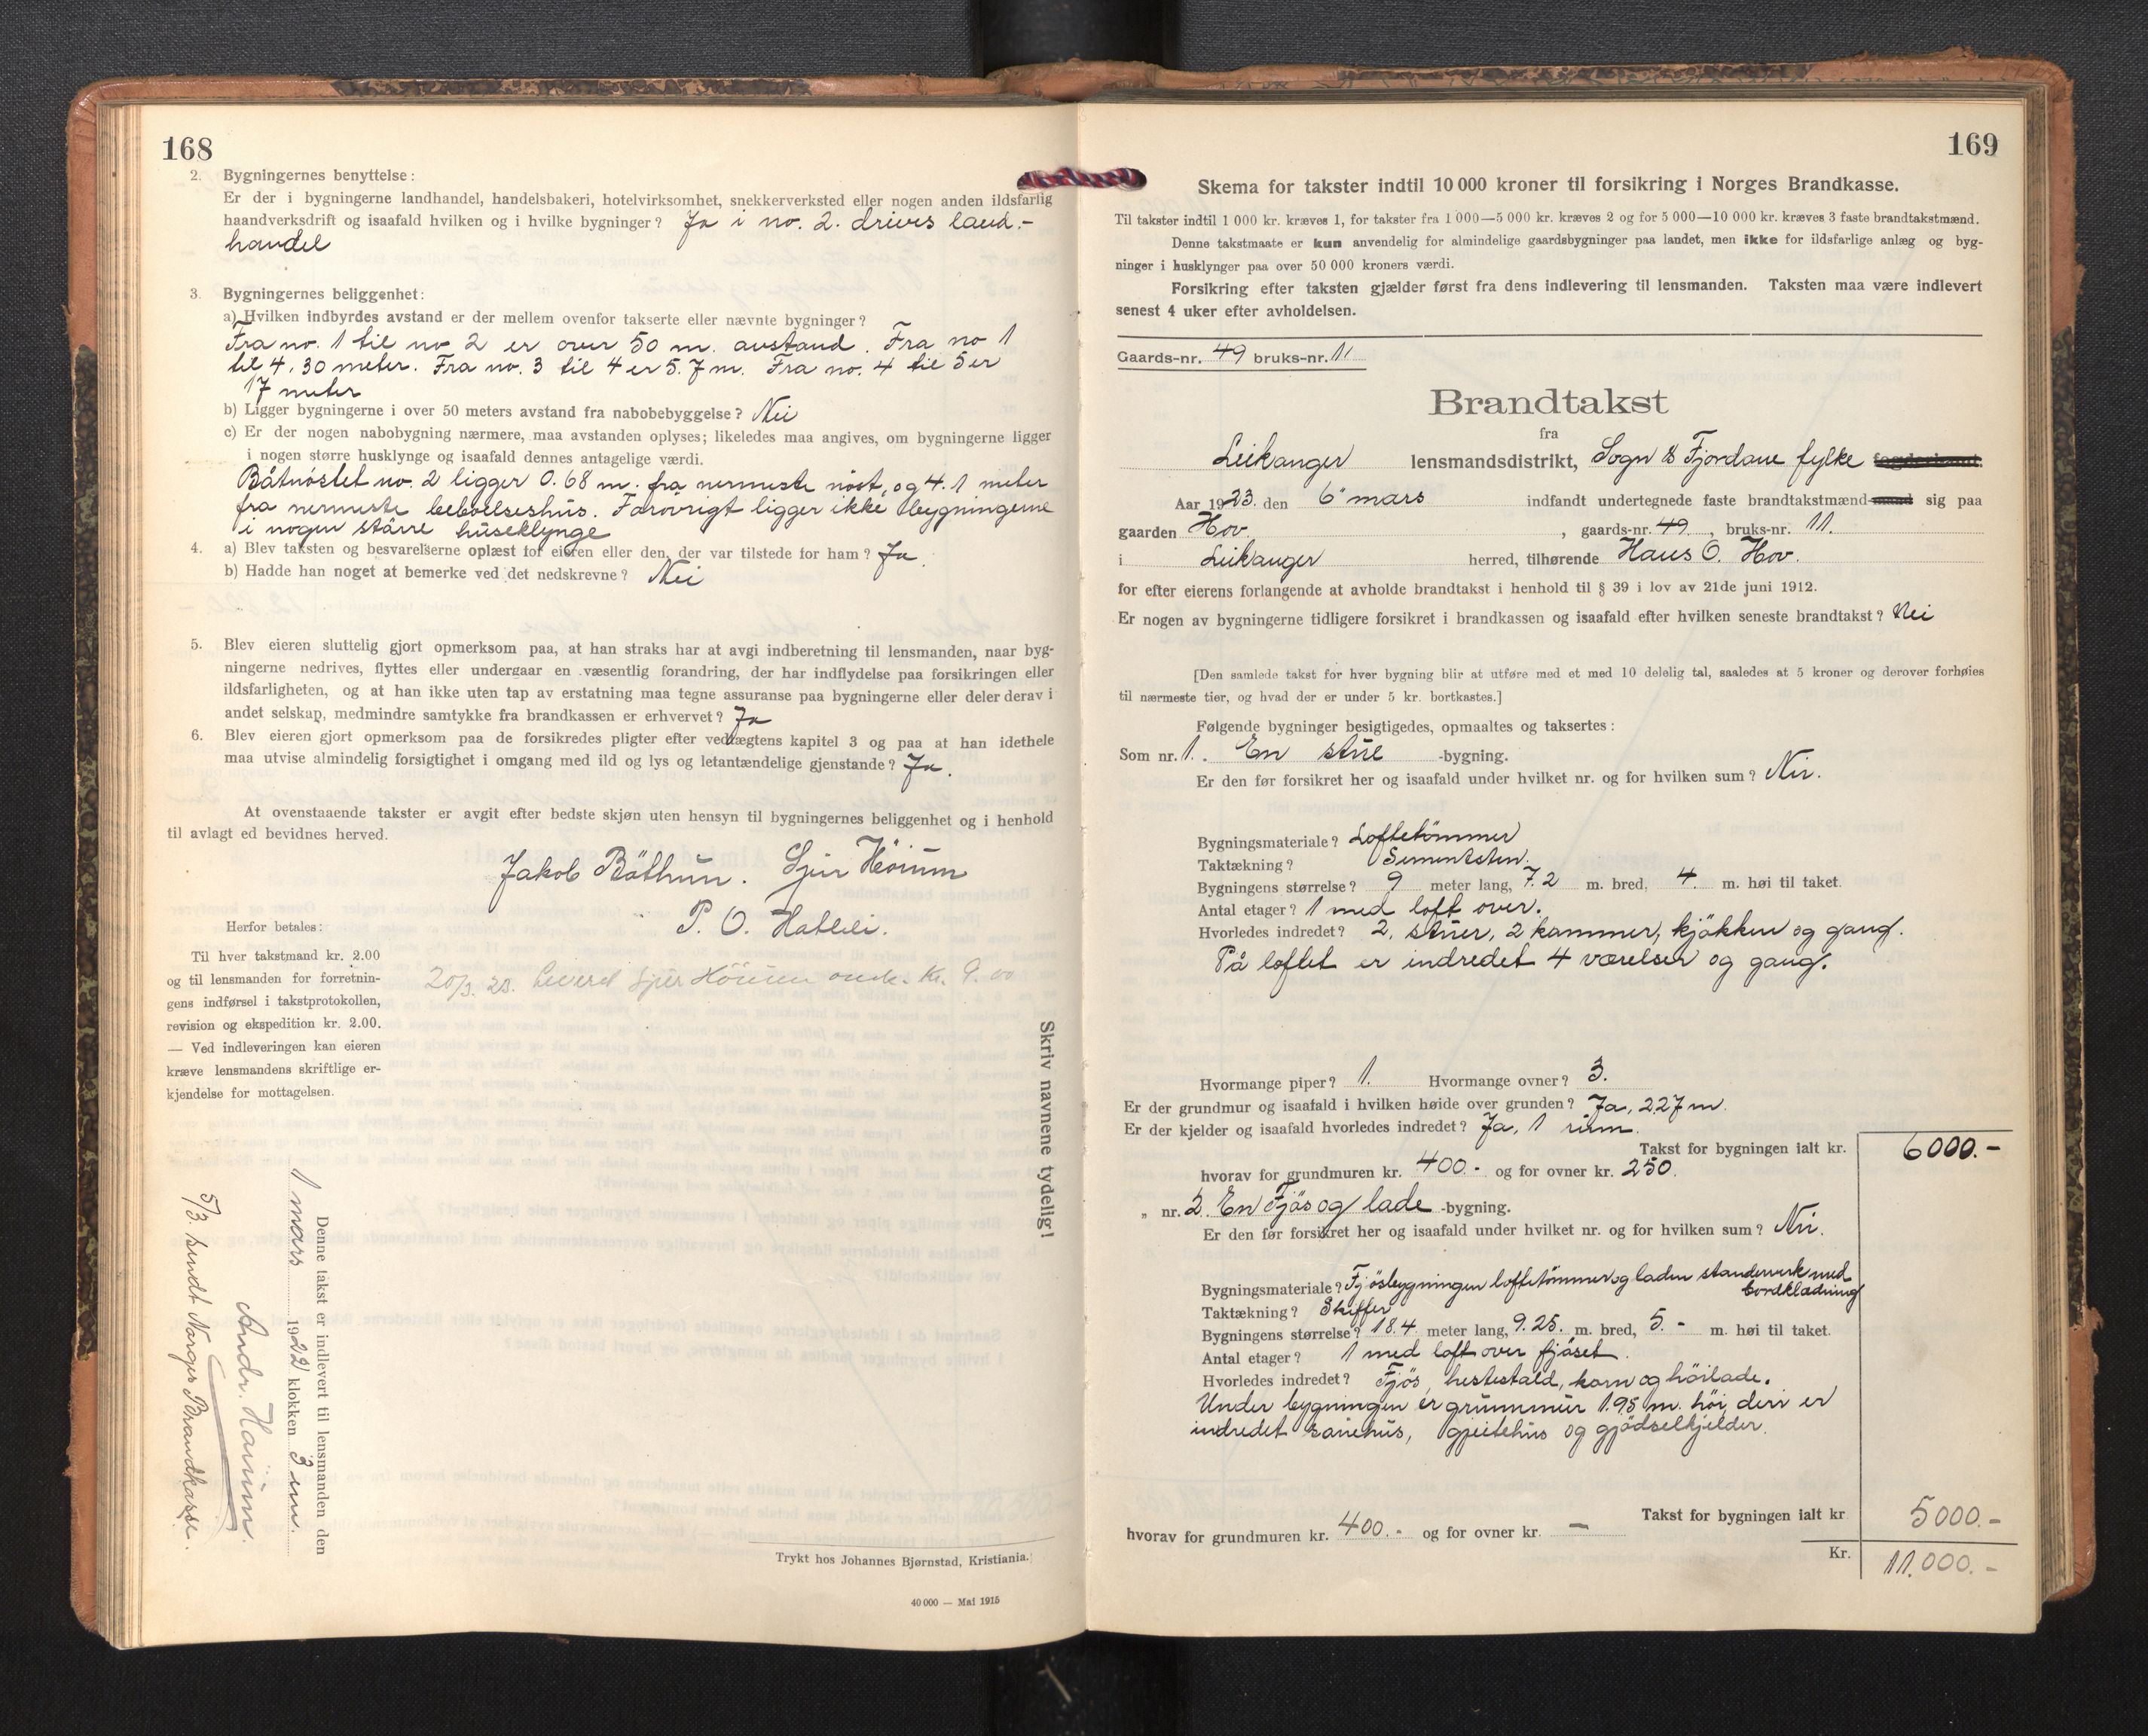 168
2. Bygningernes benyttelse:
Er der i bygningerne landhandel, handelsbakeri, hotelvirksomhet, snekkerverksted eller nogen anden ildsfarlig
haandverksdrift og isaafald hvilken og i hvilke bygninger? Ja i no. 2. drives land.-
handel
3. Bygningernes beliggenhet:
a) Hvilken indbyrdes avstand er der mellem ovenfor takserte eller nævnte bygninger?
Fra no. 1 til no 2 er over 50 m. avstand. Fra no 1
til 4, 30 meter. Fra no. 3 til 4 er 5.7 m. Fra no. 4 til 5 er
17 meter
b) Ligger bygningerne i over 50 meters avstand fra nabobebyggelse? Nei
c) Er der nogen nabobygning nærmere, maa avstanden oplyses; likeledes maa angives, om bygningerne ligger
i nogen større husklynge og isaafald dennes antagelige værdi.
Båtnöstet no. 2 ligger 0.68 m. fra nermeste nöst, og 4.1 meter
fra nermeste beboelseshus. Forövrigt ligger ikke bygningerne
i nogen större huseklynge
4. a) Blev taksten og besvarelserne oplæst for eieren eller den, der var tilstede for ham? Ja.
b) Hadde han noget at bemerke ved det nedskrevne? Nei
5. Blev eieren sluttelig gjort opmerksom paa, at han straks har at avgi indberetning til lensmanden, naar byg-
ningerne nedrives, flyttes eller undergaar en væsentlig forandring, der har indflydelse paa forsikringen eller
ildsfarligheten, og at han ikke uten tap av erstatning maa tegne assuranse paa bygningerne eller deler derav i
andet selskap, medmindre samtykke fra brandkassen er erhvervet? Ja
6. Blev eieren gjort opmerksom paa de forsikredes pligter efter vedtægtens kapitel 3 og paa at han idethele
maa utvise almindelig forsigtighet i omgang med ild og lys og letantændelige gjenstande? Ja.
At ovenstaaende takster er avgit efter bedste skjøn uten hensyn til bygningernes beliggenhet og i henhold
til avlagt ed bevidnes herved.
Jakob Böthun. Sjur Höium
P. O. Hatleli.
Herfor betales:
Til hver takstmand kr. 2.00
og til lensmanden for forretnin-
gens indførsel i takstprotokollen,
revision og ekspedition kr. 2.00.
— Ved indleveringen kan eieren
kræve lensmandens skriftlige er-
kjendelse for mottagelsen.
20/3. 23. leverd Sjur Höium Kr. 9.00
Skriv navnene tydelig!
Denne takst er indlevert til lensmanden den
1 mars 1922 klokken 3 em.
Andr. Höium.
5/3. sendt Norges Brandkasse.
Trykt hos Johannes Bjørnstad, Kristiania.
40 000 — Mai 1915
169
Skema for takster indtil 10 000 kroner til forsikring i Norges Brandkasse.
Til takster indtil 1 000 kr. kræves 1, for takster fra 1 000—5 000 kr. kræves 2 og for 5 000—10 000 kr. kræves 3 faste brandtakstmænd.
Denne takstmaate er kun anvendelig for almindelige gaardsbygninger paa landet, men ikke for ildsfarlige anlæg og byg-
ninger i husklynger paa over 50 000 kroners værdi.
Forsikring efter taksten gjælder først fra dens indlevering til lensmanden. Taksten maa være indlevert
senest 4 uker efter avholdelsen.
Gaards-nr. 49 bruks-nr. 11
Brandtakst
fra
Leikanger lensmandsdistrikt, Sogn & Fjordane fylke
Aar 1923. den 6 mars indfandt undertegnede faste brandtakstmænd sig paa
gaarden Hov, gaards-nr. 49, bruks-nr. 11.
i Leikanger herred, tilhørende Hans O. Hov.
for efter eierens forlangende at avholde brandtakst i henhold til § 39 i lov av 21de juni 1912.
Er nogen av bygningerne tidligere forsikret i brandkassen og isaafald efter hvilken seneste brandtakst? Nei
[Den samlede takst for hver bygning blir at utføre med et med 10 delelig tal, saaledes at 5 kroner og derover forhøies
til nærmeste tier, og hvad der er under 5 kr. bortkastes.]
Følgende bygninger besigtigedes, opmaaltes og taksertes:
Som nr. 1. En stue -bygning.
Er den før forsikret her og isaafald under hvilket nr. og for hvilken sum? Nei.
Bygningsmateriale? Loftetömmer
Taktækning? Sementsten.
Bygningens størrelse? 9 meter lang, 7.2 m. bred, 4. m. høi til taket.
Antal etager? 1 med loft over.
Hvorledes indredet? 2. stuer, 2 kammer, kjökken og gang.
På loftet er indredet 4 værelser og gang.
Hvormange piper? 1. Hvormange ovner? 3.
Er der grundmur og isaafald i hvilken høide over grunden? Ja, 2.27 m.
Er der kjelder og isaafald hvorledes indredet? Ja, 1 rum.
Takst for bygningen ialt kr. 6000.-
hvorav for grundmuren kr. 400.- og for ovner kr. 250.
„ nr. 2. En Fjös og lade -bygning.
Er den før forsikret her og isaafald under hvilket nr. og for hvilken sum? Nei.
Bygningsmateriale? Fjösbygningen loftetömmer og laden standerverk med
bordklædning
Taktækning? Skiffer
Bygningens størrelse? 18.4. meter lang, 9.25. m. bred, 5.- m. høi til taket.
Antal etager? 1 med loft over fjöset.
Hvorledes indredet? Fjös, hestestald, korn og höilade.
Under bygningen er grunmur 1.95 m. höi, deri er
indredet sauehus, gjeitehus og gjödselkjelder.
Takst for bygningen ialt kr 5000.-
hvorav for grundmuren kr. 400.- og for ovner kr. —
Kr. 11.000.-